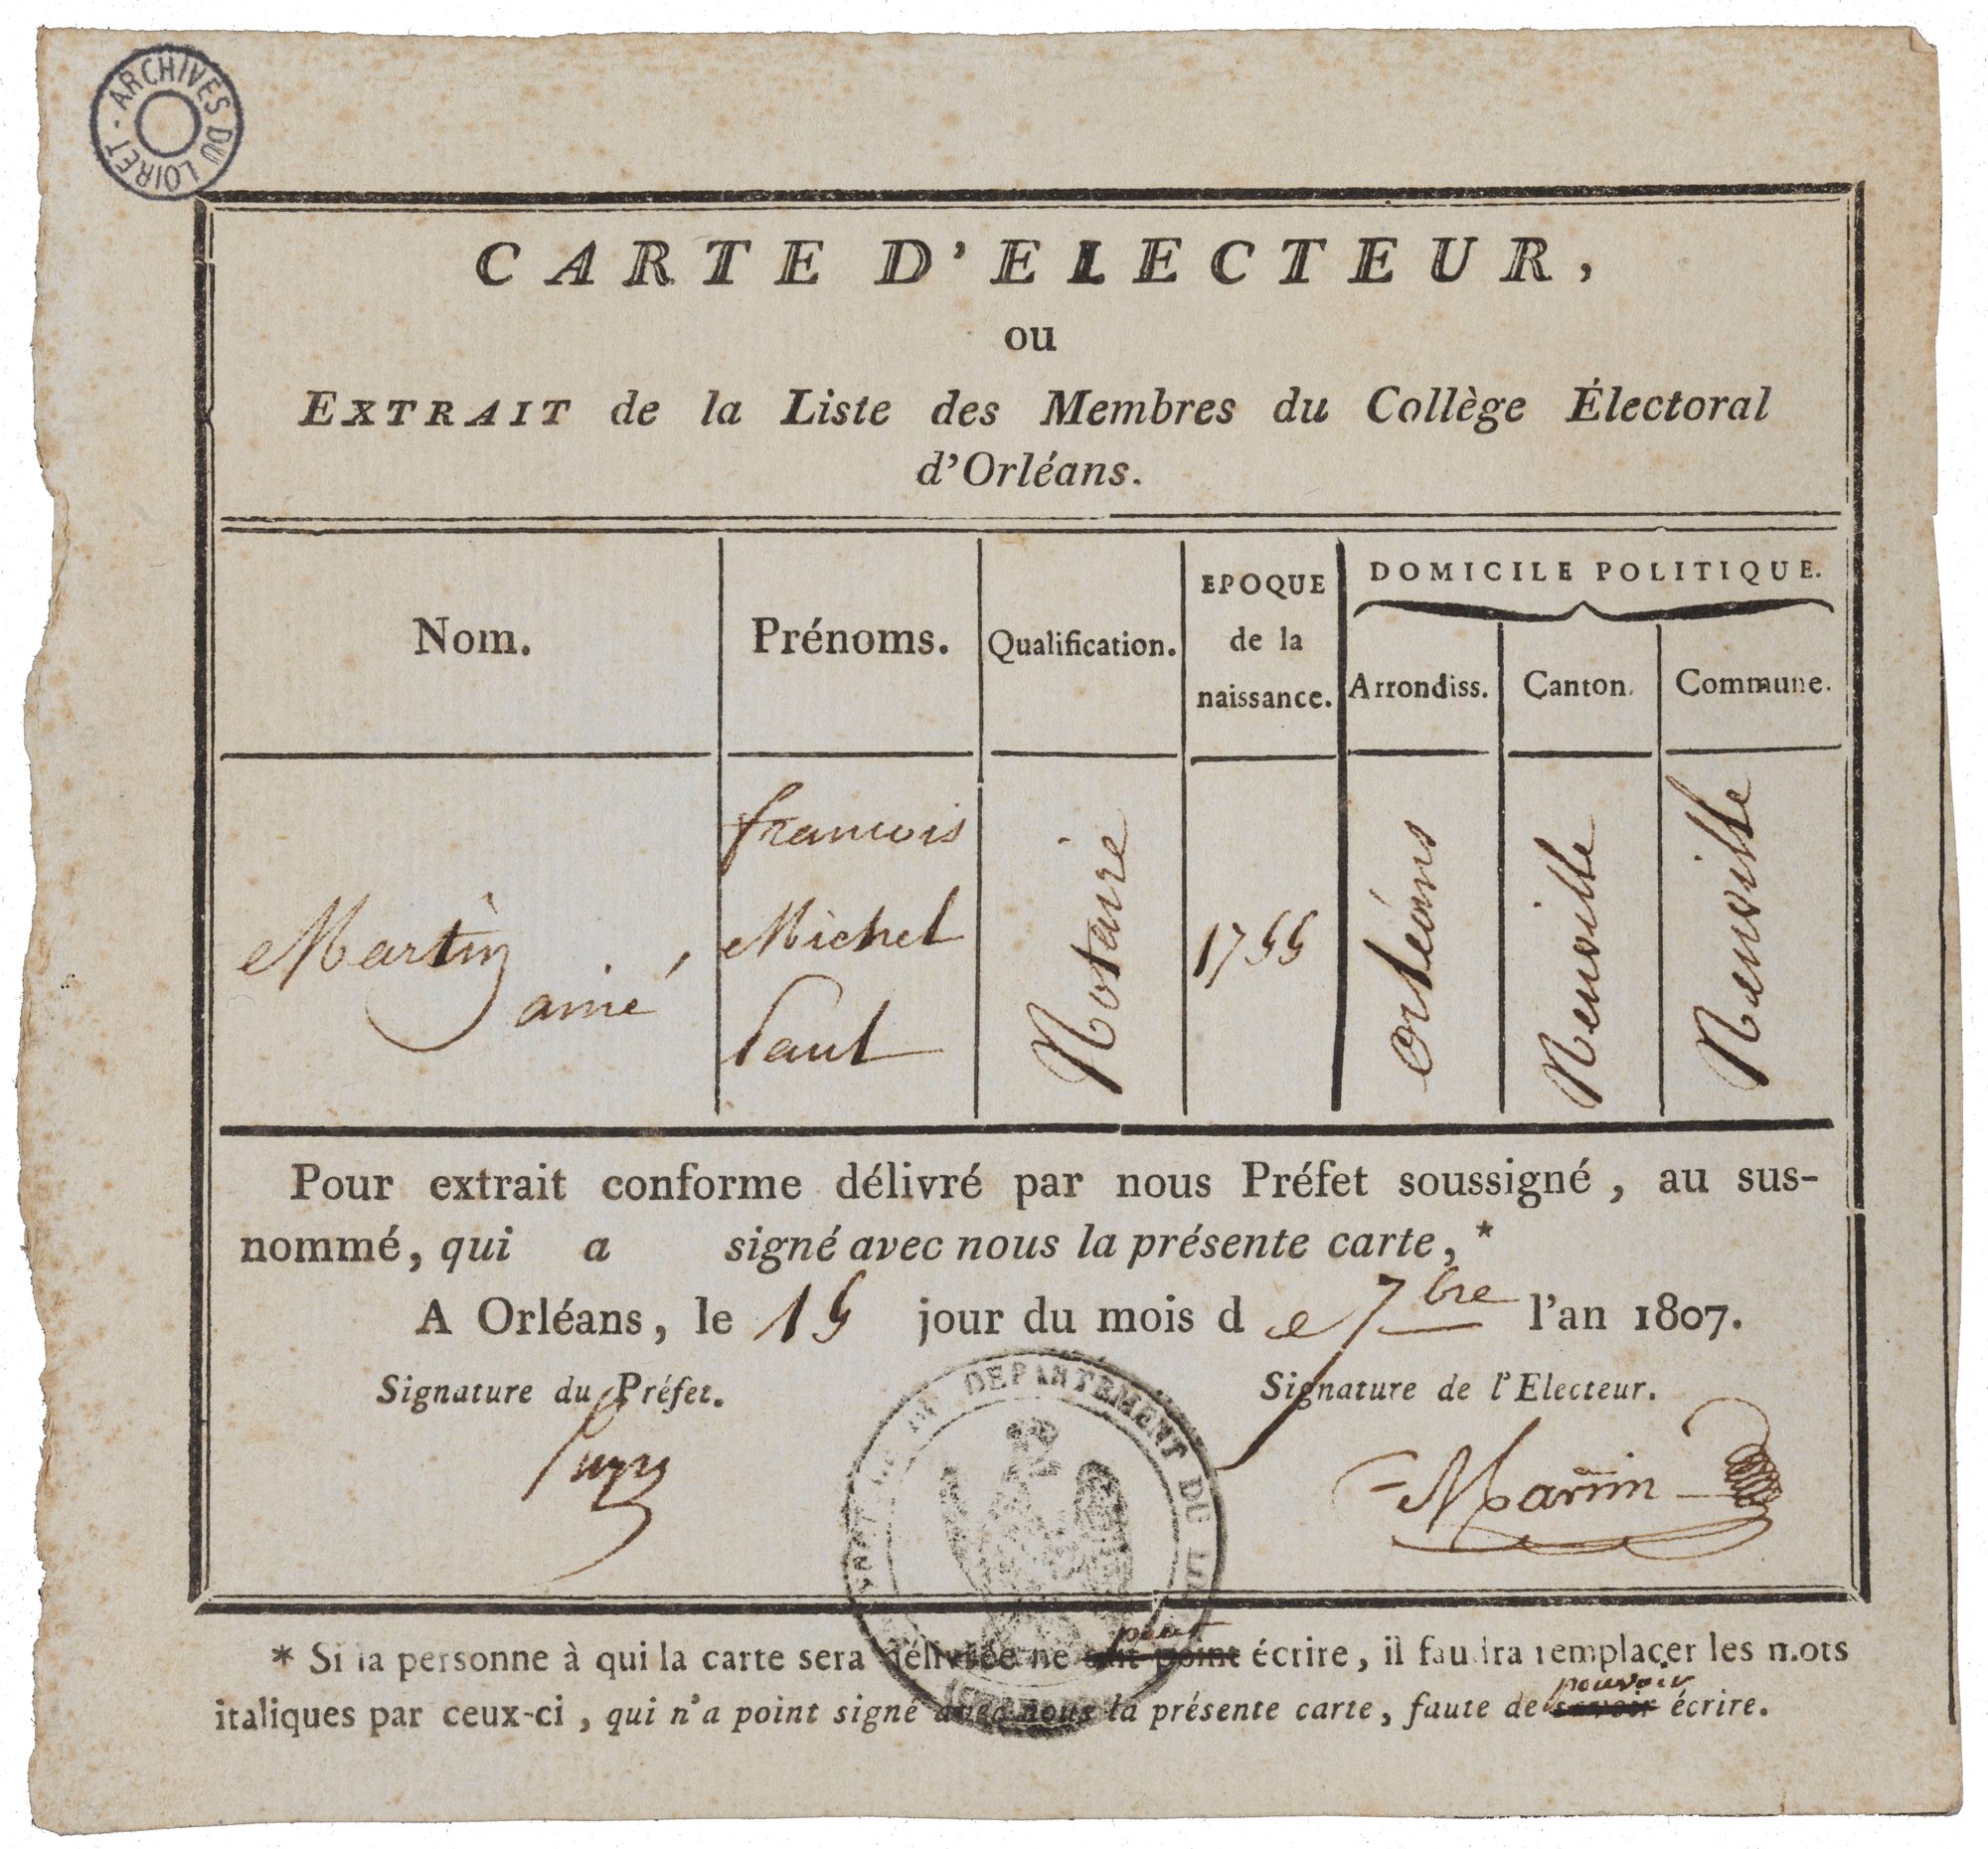 ARCHIVES DU LOIRET
CARTE D'ELECTEUR,
ou
EXTRAIT de la Liste des Membres du Collège Électoral
d'Orléans.
Nom.
Prénoms.
Qualification.
EPOQUE
de la
naissance.
DOMICILE POLITIQUE.
Arrondiss.
Canton.
Commune.
Martin
ainé,
francois
Michel
Paul
Notaire
1755
orléans
Neuville
Neuville
Pour extrait conforme délivré par nous Préfet soussigné, au sus-
nommé, qui a signé avec nous la présente carte,*
A Orléans, le 15 jour du mois d e 7bre l'an 1807.
Signature du Préfet.
Signature de l'Electeur.
Martin
DEPARTEMENT DU
* Si la personne à qui la carte sera délivrée ne peut écrire, il faudra remplacer les mots
italiques par ceux-ci, qui n'a point signé avec nous la présente carte, faute de pouvoir écrire.